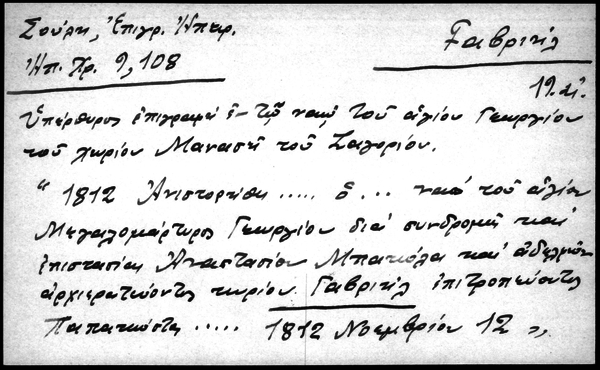 Σούλη, Ἐπιγρ. Ἠπειρ.
Ἠπ. Χρ. 9, 108
Γαβριήλ
19. αἰ.
Ὑπέρθυρος ἐπιγραφή ἐν τῷ ναῷ τοῦ ἁγίου Γεωργίου
τοῦ χωρίου Μανασῆ τοῦ Ζαγορίου.
" 1812 Ἀνιστορήθη ..... ὁ ... ναός τοῦ ἁγίου
Μεγαλομάρτυρος Γεωργίου διά συνδρομῆς καί
ἐπιστασίας Ἀναστασίου Μπατζόλα καί ἀδελφῶν
ἀρχιερατεύοντος κυρίου Γαβριήλ ἐπιτροπεύοντος
Παπακώστα ..... 1812 Νοεμβρίου 12 "